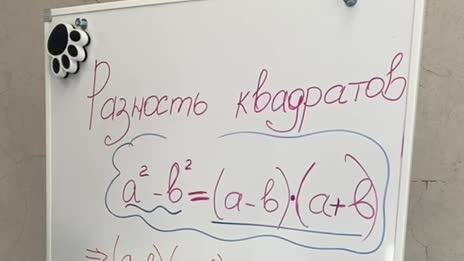 Разность квадратов
a² - b² = (a - b) · (a + b)